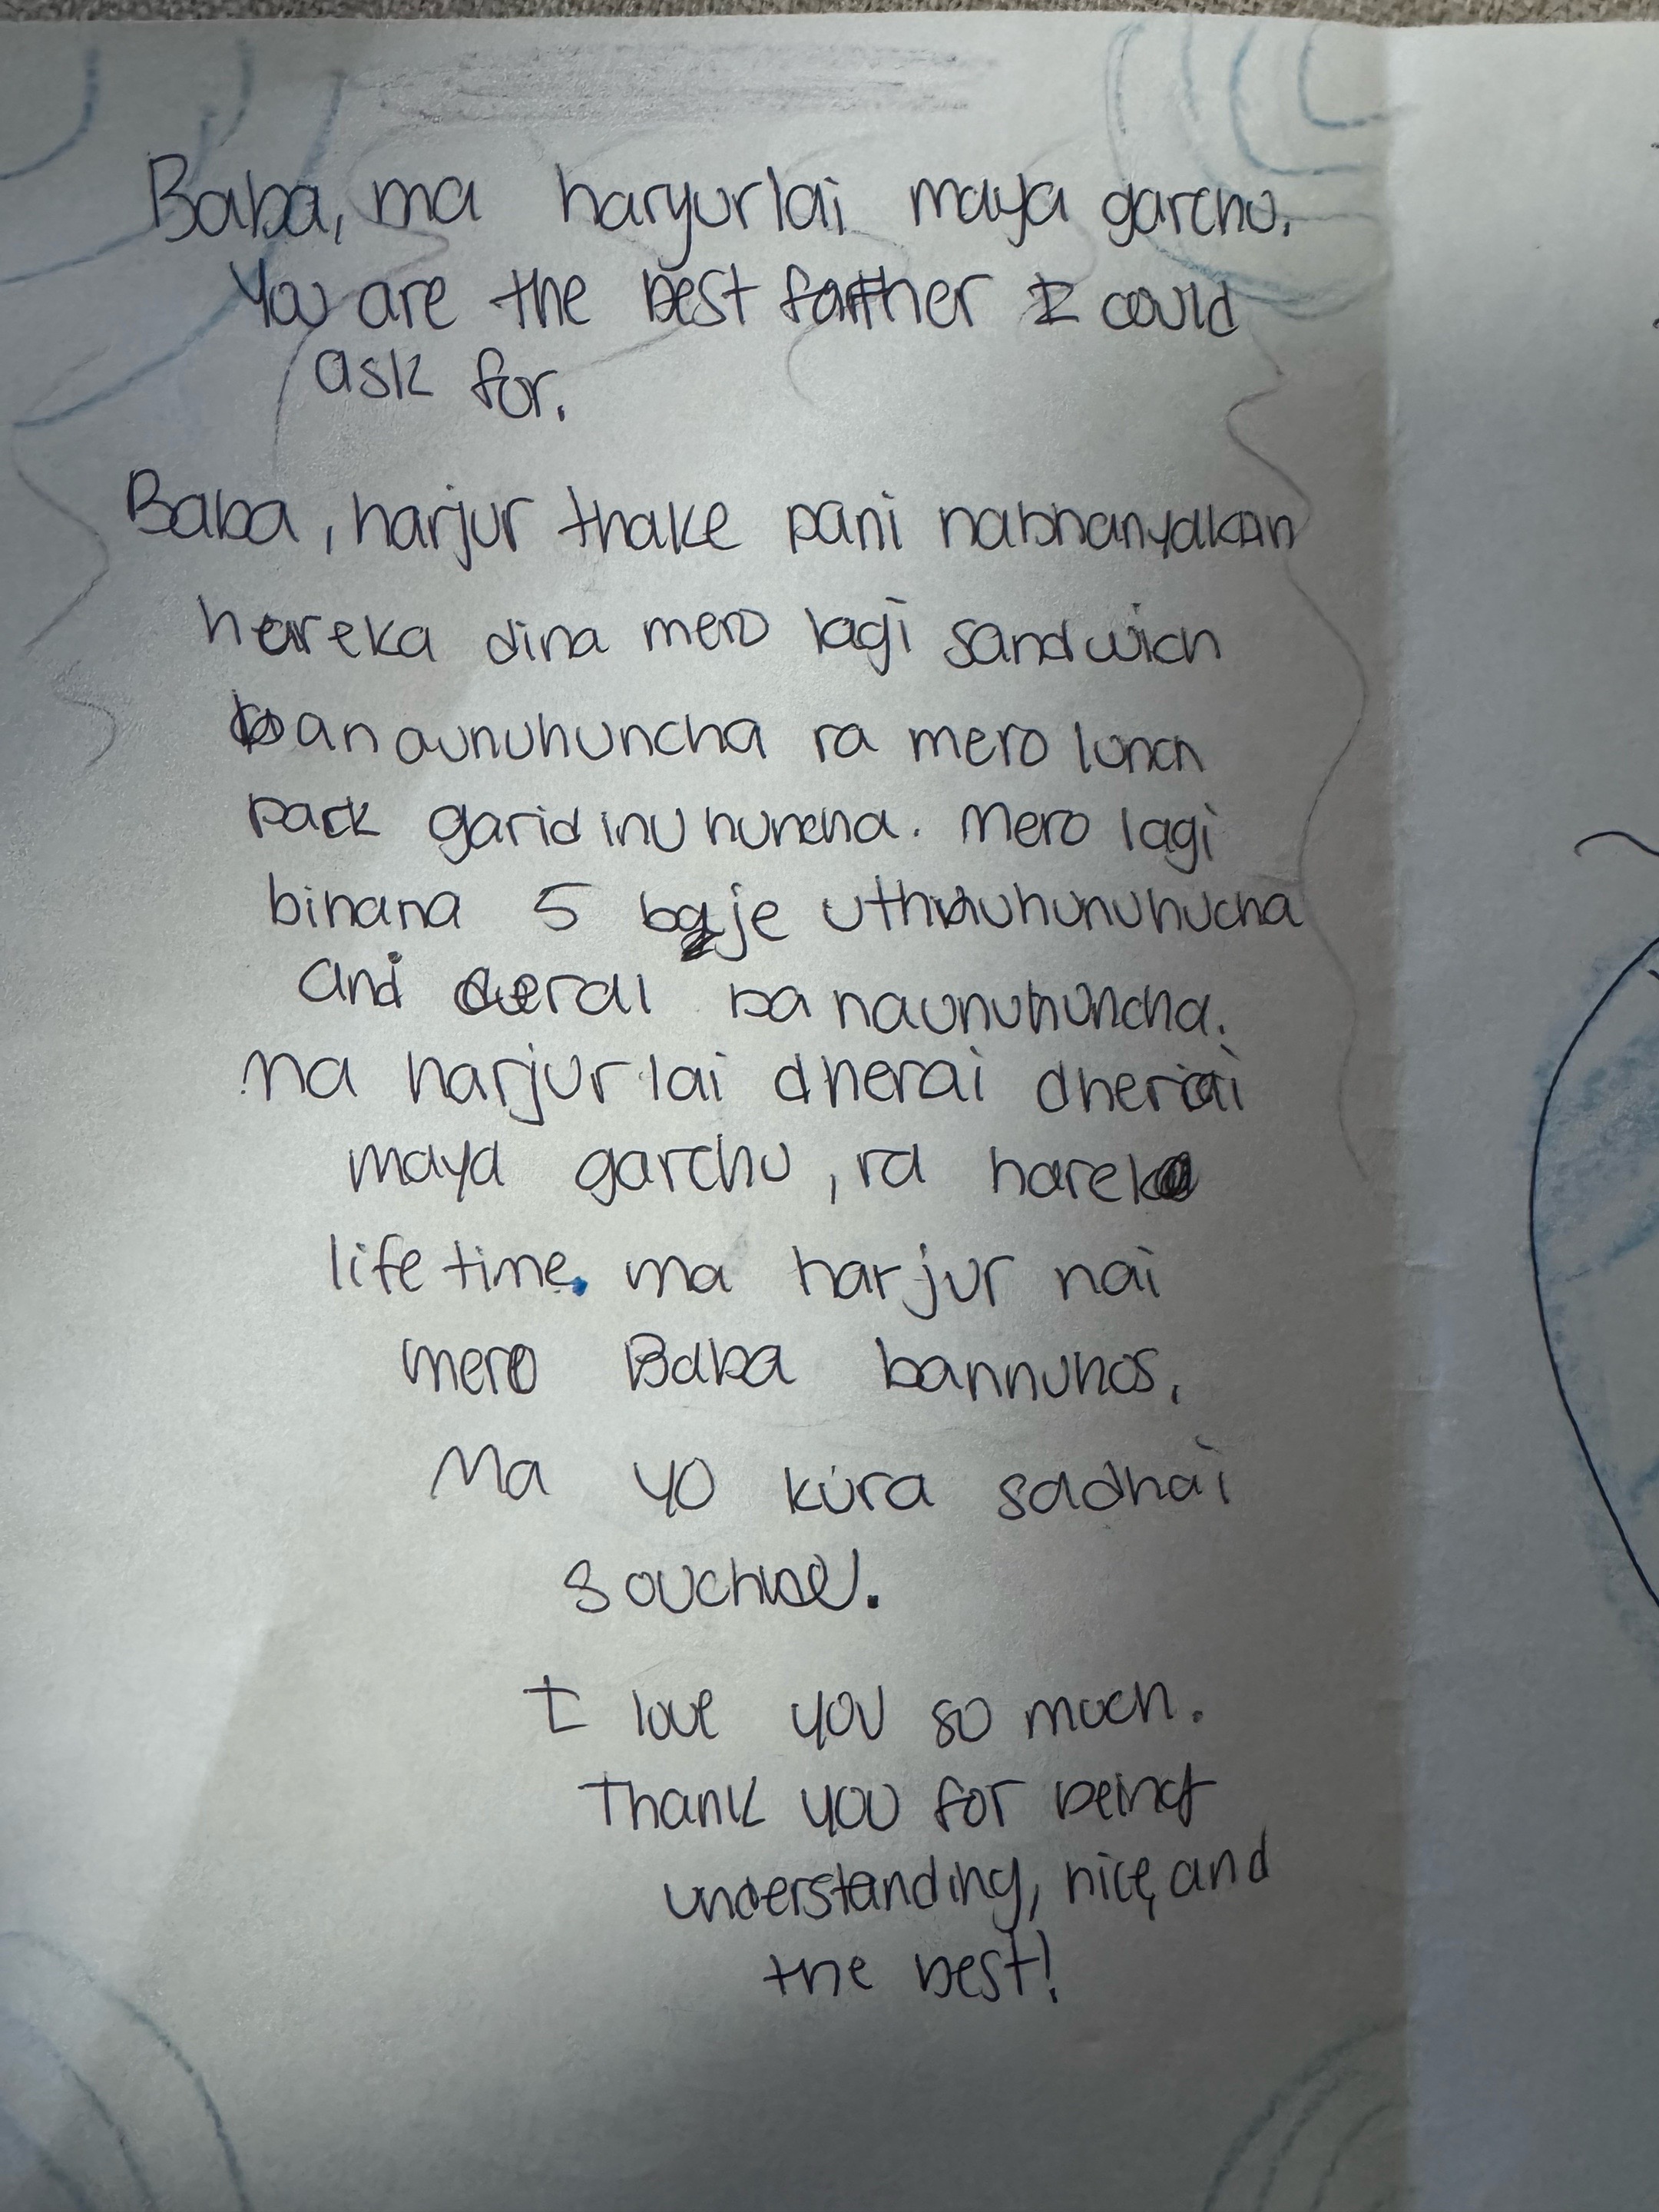 Baba, ma haryurlai maya garchu.
You are the best father I could
ask for.
Baba, harjur thake pani nabhanyakan
hareka dina mero lagi sandwich
banaunuhuncha ra mero lunch
pack garidinuhuncha. Mero lagi
binana 5 baje
ani banaunuhuncha.
Ma harjurlai dherai dherai
maya garchu, ra hareka
life time ma harjur nai
mero Baba bannuhos,
Ma yo kura sadhai
I love you so much.
Thank you for being
understanding, nice, and
the best!